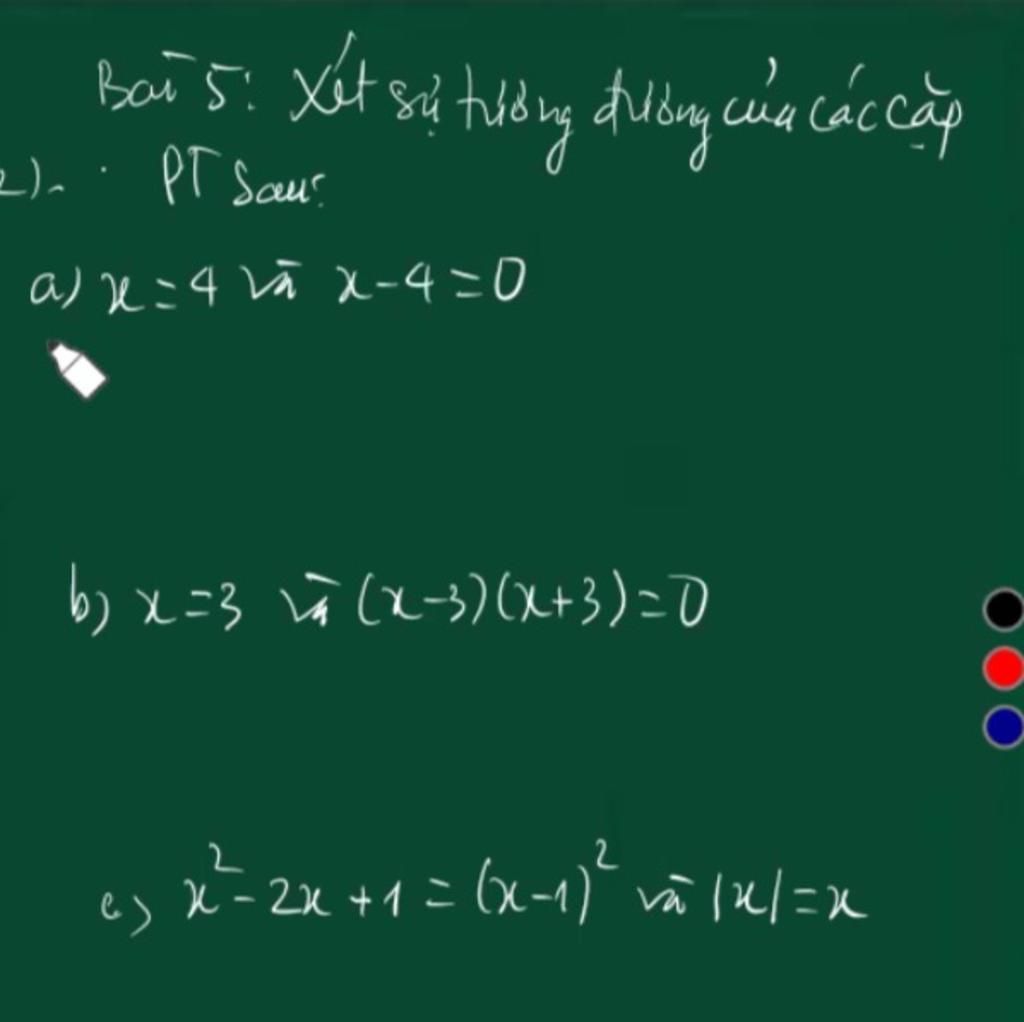 Bài 5: Xét sự tương đương của các cặp
2). PT sau:
a) x = 4 và x - 4 = 0
b) x = 3 và (x-3)(x+3) = 0
c) x² - 2x + 1 = (x-1)² và |x| = x